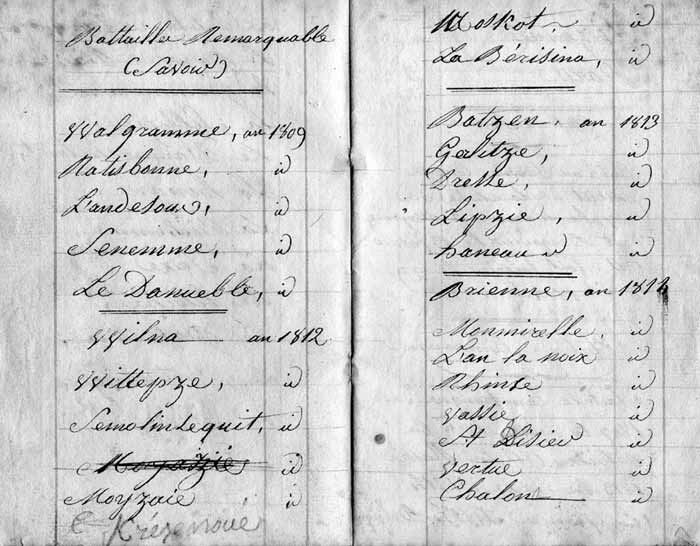 Battailles Remarquable
(Savoir)
Walgramme, an 1809
Ratisbonne, id
Landesous, id
Senemme, id
Le Danueble, id
Wilna an 1812
Wittepze, id
Semolinsequit, id
Moyazié id
Moyzaie id
Krézenoué
Moskot id
La Bérisina, id
Batzen, an 1813
Gerlitze, id
Dresse, id
Lipzie, id
haneau id
Brienne, an 1814
Monmirelle, id
L'an la noix id
Rhinse id
Vassie id
St Disier id
Vertue id
Chalon id